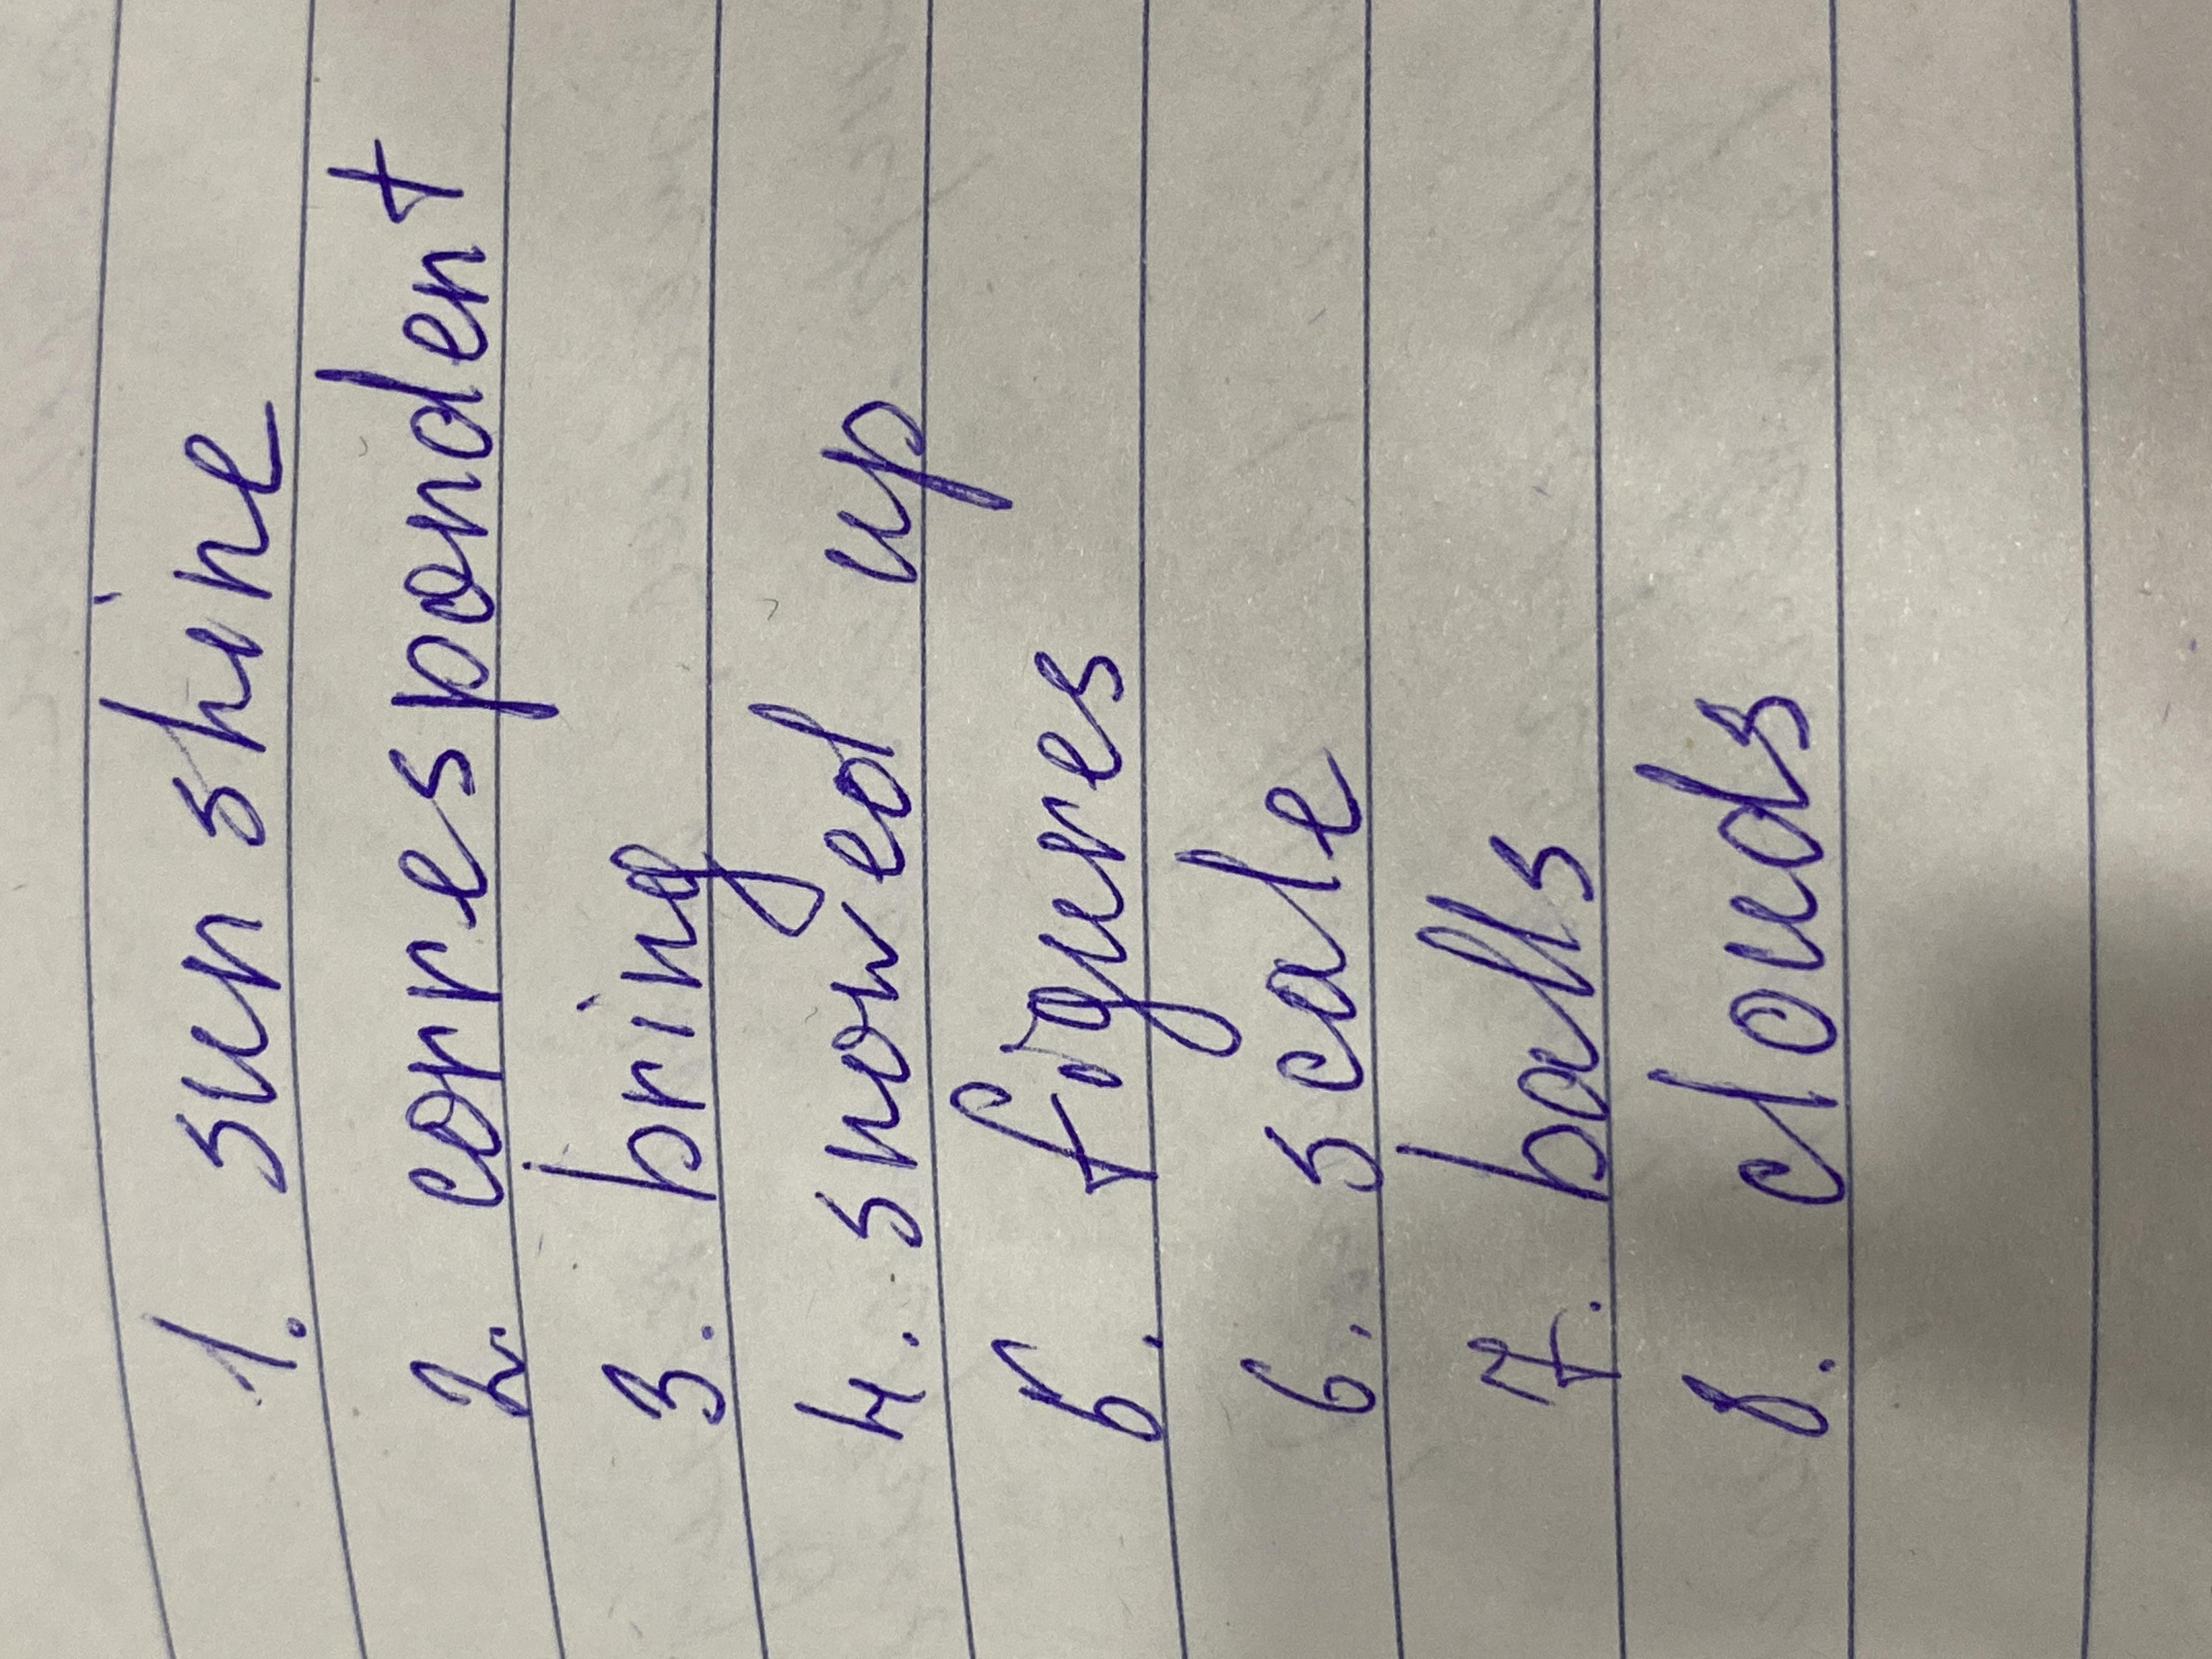 1. sunshine
2. correspondent
3. bring
4. snowed up
5. figures
6. scale
7. balls
8. clouds